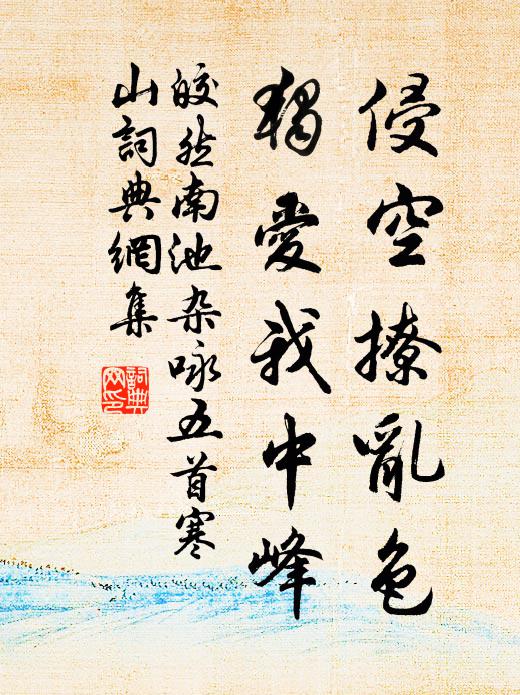 侵空撩亂色
獨愛我中峰
皎然南池杂咏五首寒
山詞典網集
詞典网印